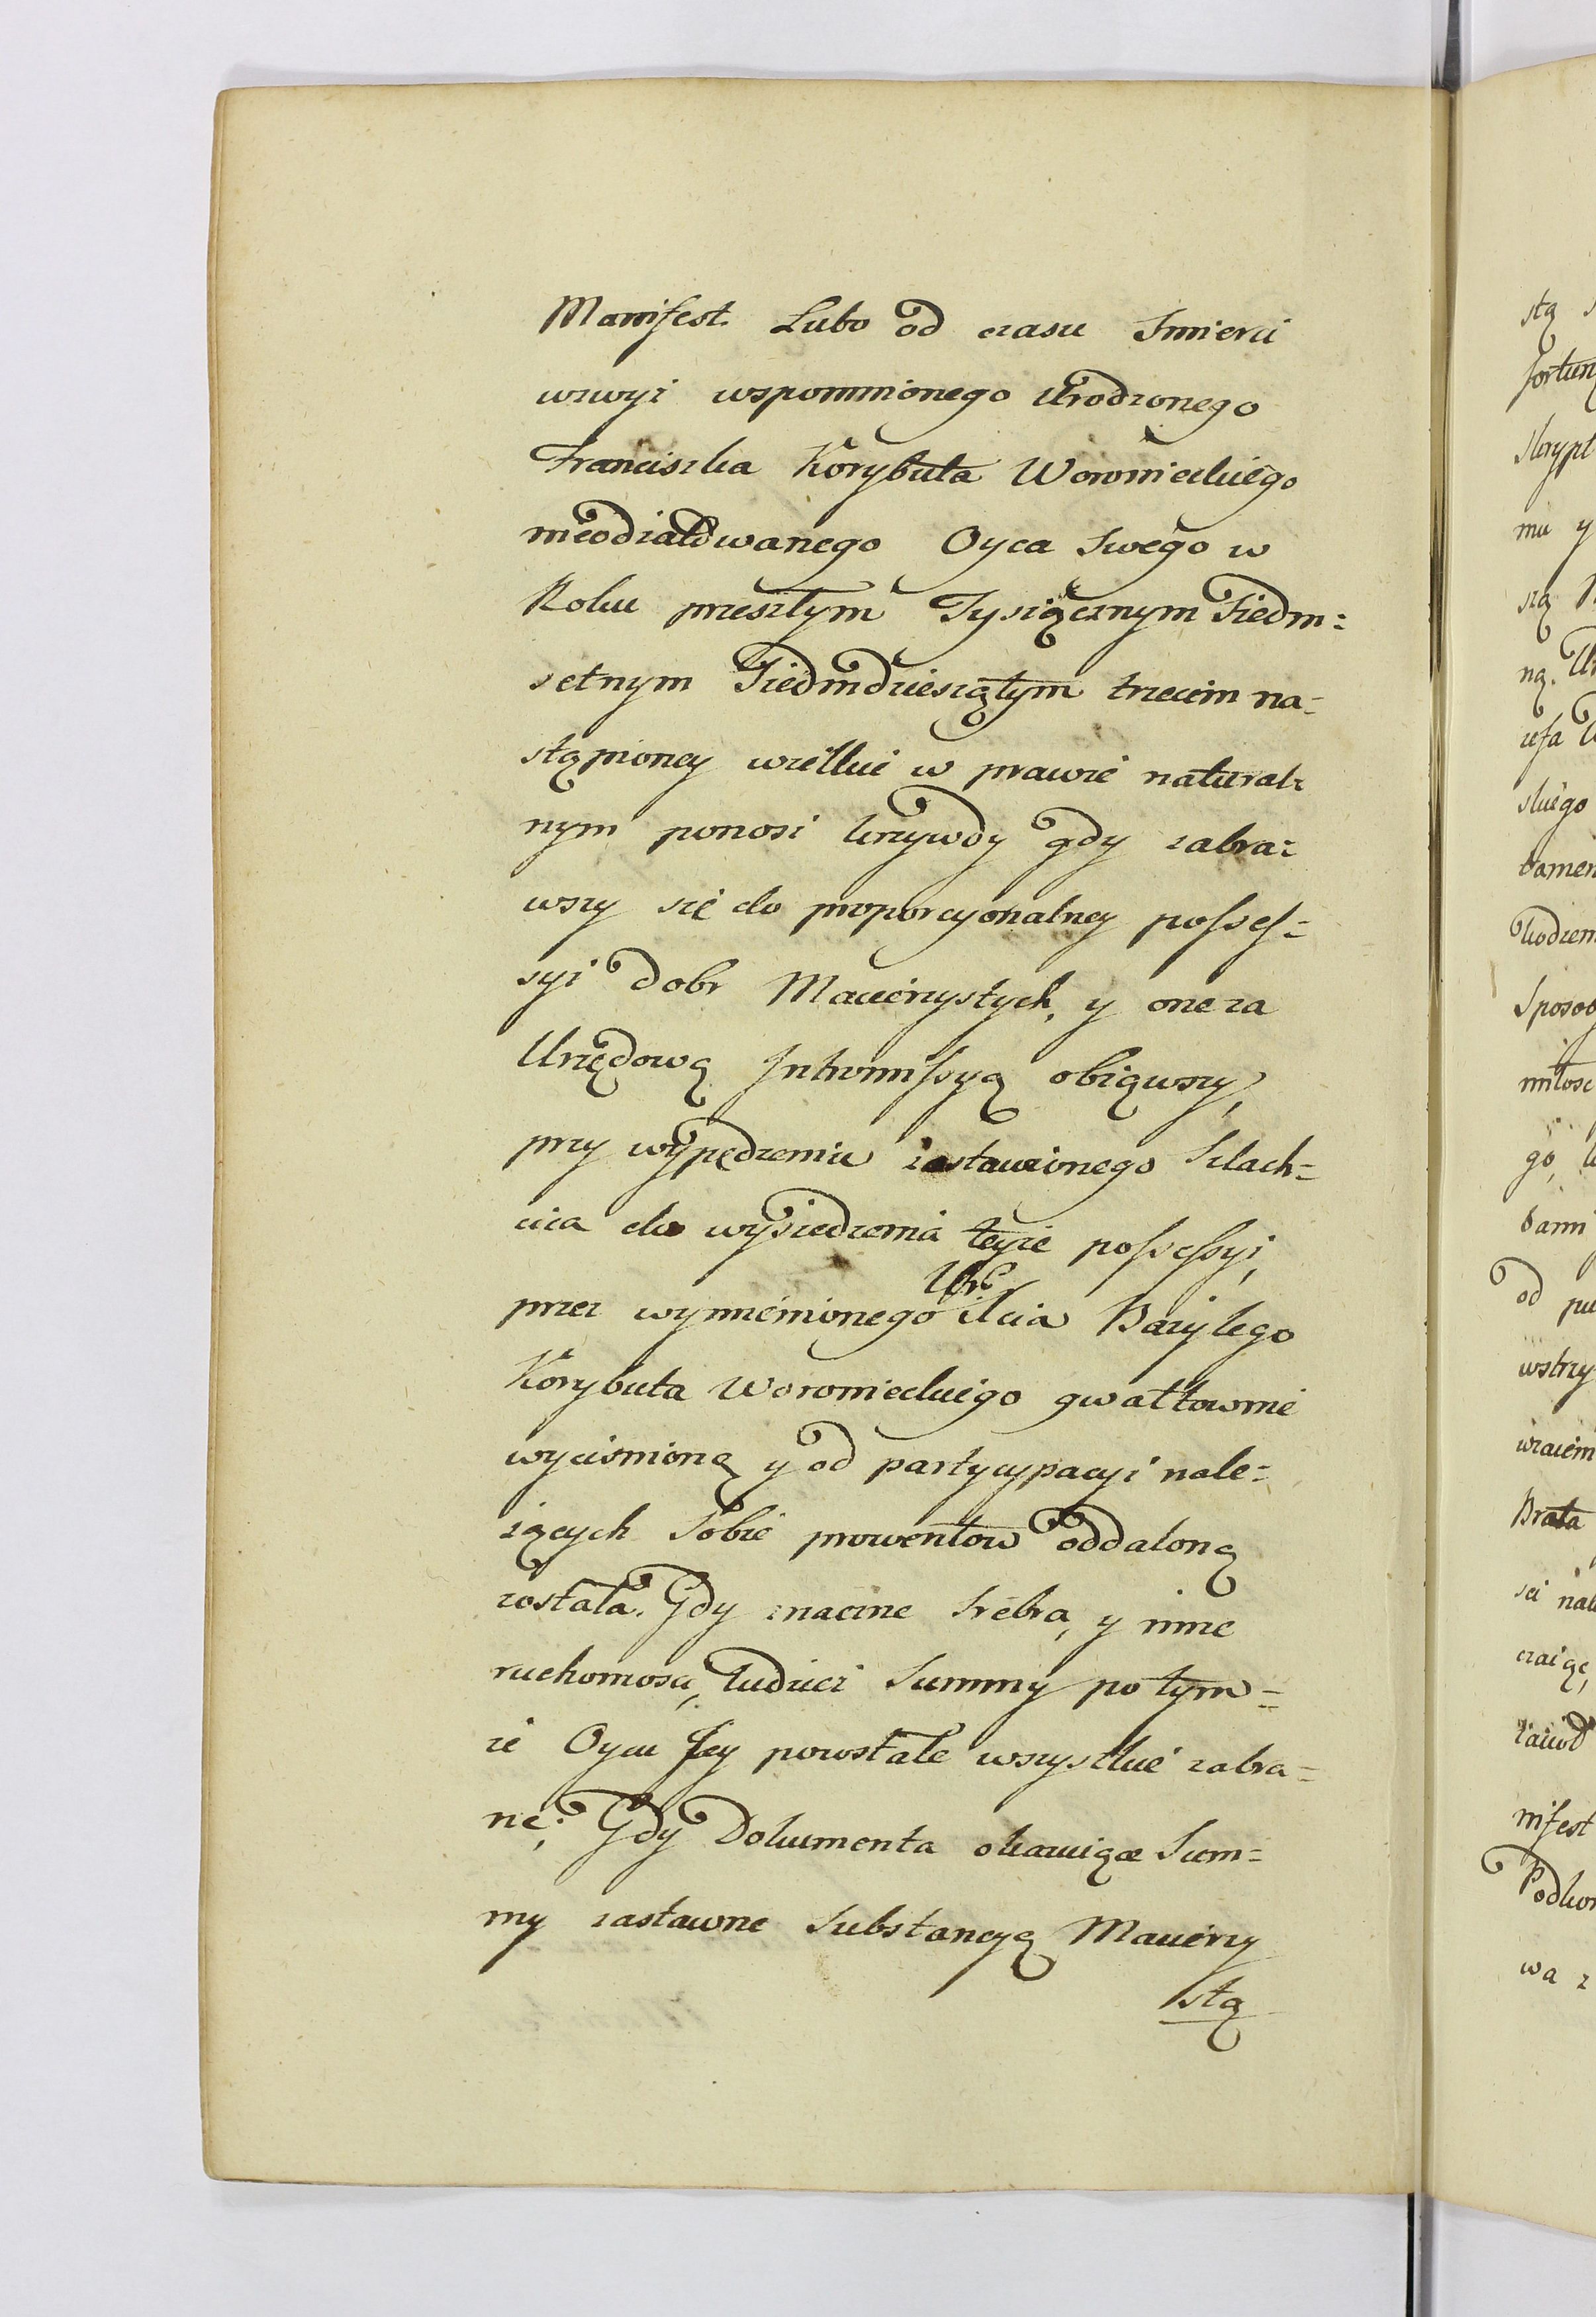 Manifest. Lubo od czasu Smierci
wzwyż wspomnionego Urodzonego
Franciszka Korybuta Woronieckiego
nieodżałowanego Oyca Swego w
Roku przeszłym Tysiącznym Siedm=
setnym Siedmdziesiątym trzecim na=
stąpioney wielkie w prawie natural=
nym ponosi krzywdy gdy zabra=
wszy się do proporcyonalney posses=
syi Dobr Macierzystych, y one za
Urzędową Intromissyą obiąwszy,
przy wypędzeniu zostawionego Szlach=
cica do wysiedzenia teyże possessyi,
przez wymienionego Ur: Xcia Bazylego
Korybuta Woronieckiego gwałtownie
wycisnioną y od partycypacyi nale=
żących Sobie prowentow oddaloną
została. Gdy znaczne Srebra, y inne
ruchomosci, tudzież Summy po tym=
że Oycu Jey powstałe wszystkie zabra=
ne; Gdy Dokumenta okazuiące Sum=
my zastawne Substancyą Macierzy
stą
stą
fortun
skrypt
mu y
szą
ną. Ur
zefa
skiego
bamen
Sposob
miłosc
go,
bami
od pu
wstrzy
wzaiem
Brata
sci nal
czaiąc,
nifest
Podkom
wa z